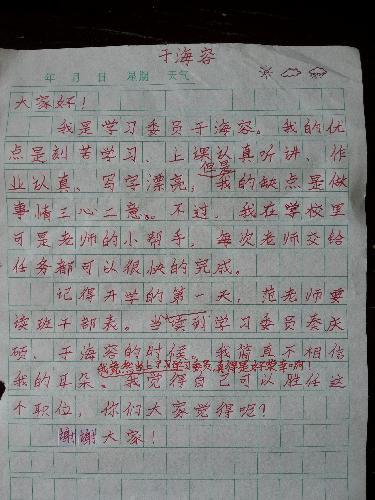 于海容
年 月 日 星期 天气
大家好！
我是学习委员于海容。我的优
点是刻苦学习、上课认真听讲、作
但是
业认真、写字漂亮，我的缺点是做
事情三心二意。不过，我在学校里
可是老师的小帮手，每次老师交给
任务都可以很快的完成。
记得开学的第一天，范老师要
读班干部表。当读到学习委员秦庆
硕、于海容的时候。我简直不相信
我竟然当上了学习委员真得是好荣幸啊！
我的耳朵。我觉得自己可以胜任这
个职位，你们大家觉得呢？
谢谢大家！